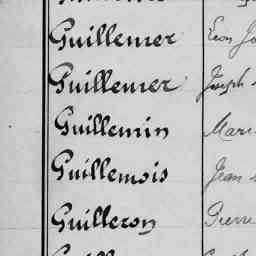 Guillemer Léon
Guillemer Joseph
Guillemin
Guillemois Jean
Guilleron Pierre